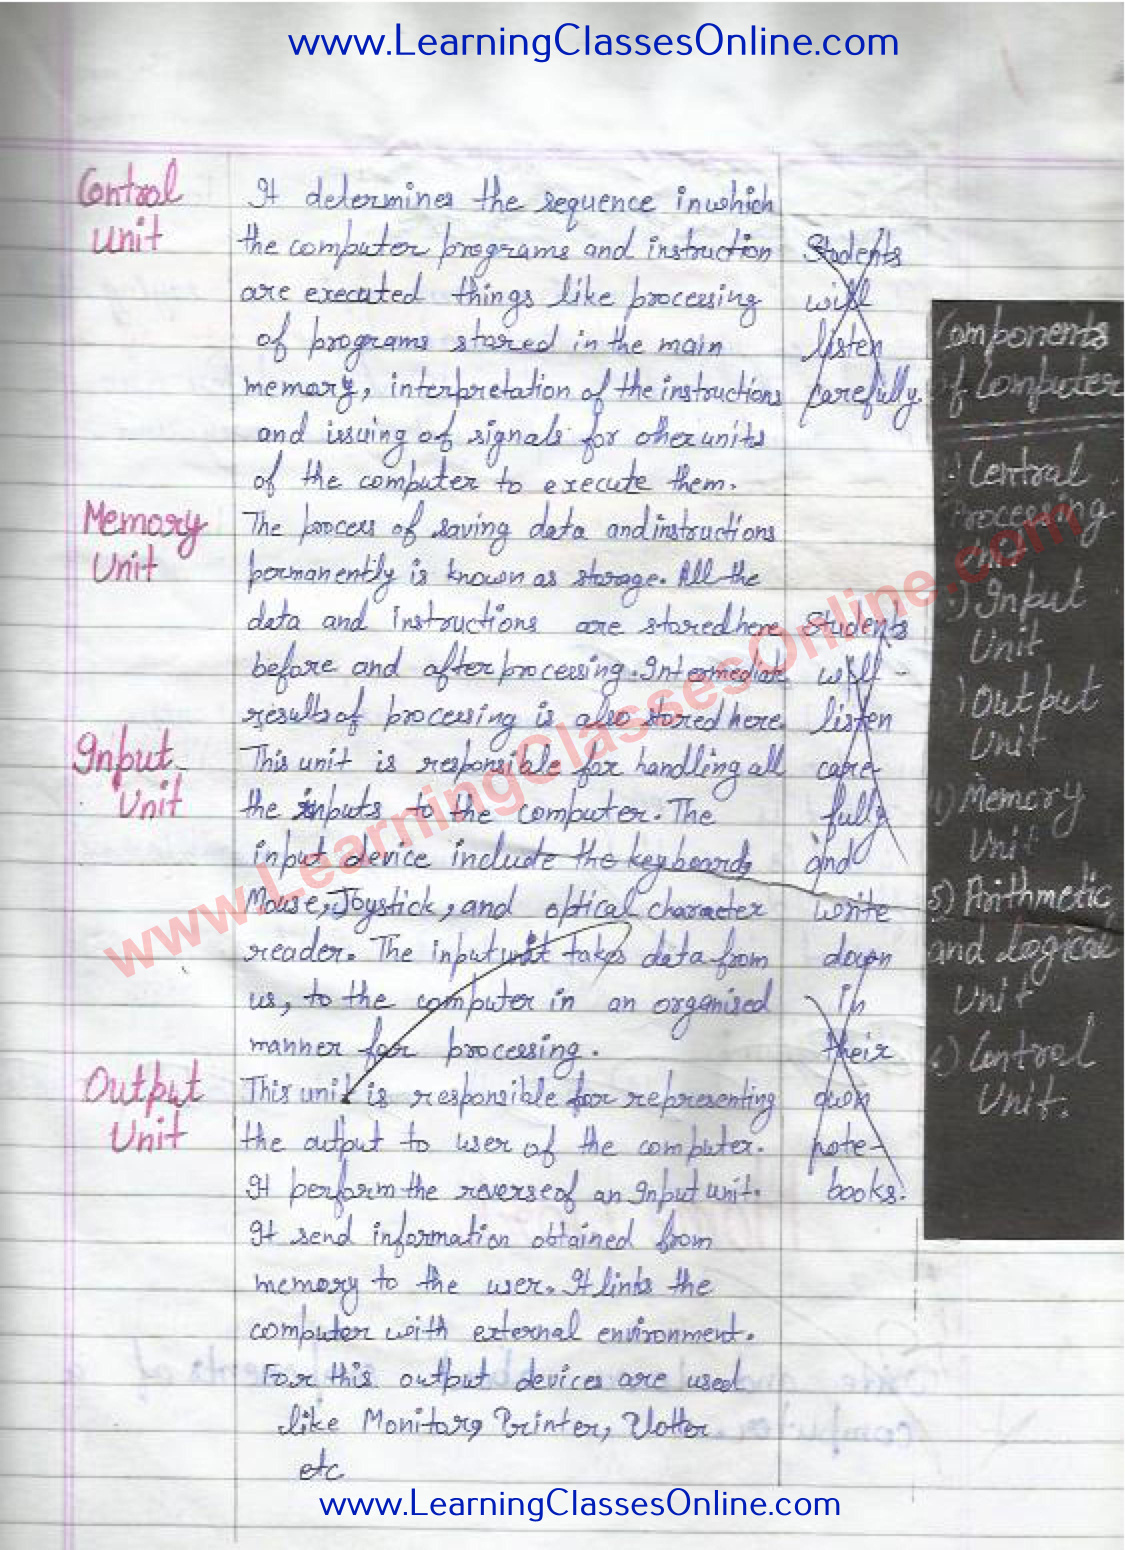 www.LearningClassesOnline.com
Control
Unit
It determines the sequence in which
the computer programs and instruction
are executed things like processing
of programs stored in the main
memory, interpretation of the instructions
and issuing of signals for other units
of the computer to execute them.
Students
will
listen
carefully.
Memory
Unit
The process of saving data and instructions
permanently is known as storage. All the
data and instructions are stored here
before and after processing. Intermediate
results of processing is also stored here
Input
Unit
This unit is responsible for handling all
the inputs to the computer. The
input device include the keyboard,
Mouse, Joystick, and optical character
reader. The input unit takes data from
us, to the computer in an organised
manner for processing.
Students
will
listen
care-
fully
and
write
down
in
their
own
note-
books.
Output
Unit
This unit is responsible for representing
the output to user of the computer.
It perform the reverse of an Input unit.
It send information obtained from
memory to the user. It links the
computer with external environment.
For this output devices are used
like Monitors, Printer, Plotter
etc
Components
of Computer
1) Central
Processing
Unit
2) Input
Unit
3) Output
Unit
4) Memory
Unit
5) Arithmetic
and Logical
Unit
6) Control
Unit.
www.LearningClassesOnline.com
www.LearningClassesOnline.com